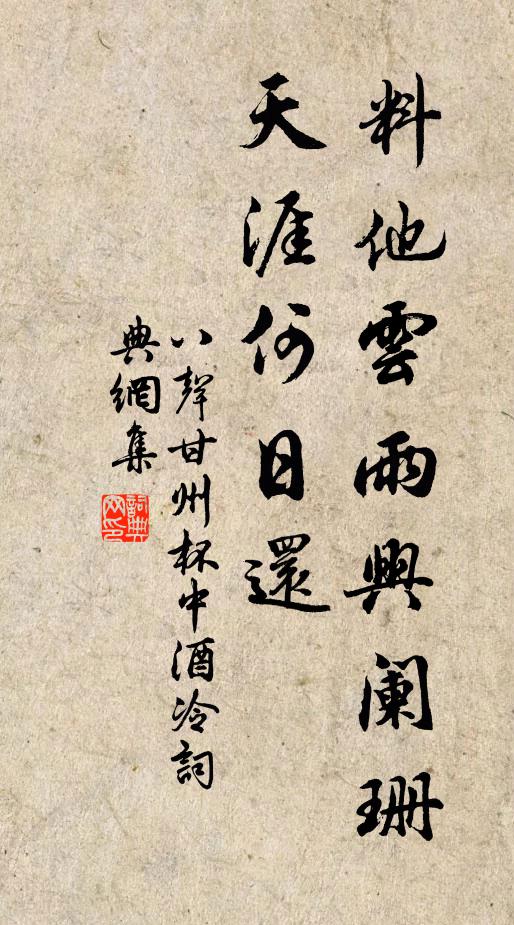 料他雲雨興阑珊
天涯何日還
八聲甘州杯中酒冷詞
典網集
詞典
网印